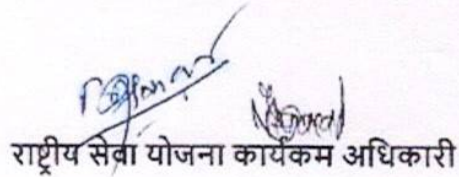 राष्ट्रीय सेवा योजना कार्यकम अधिकारी